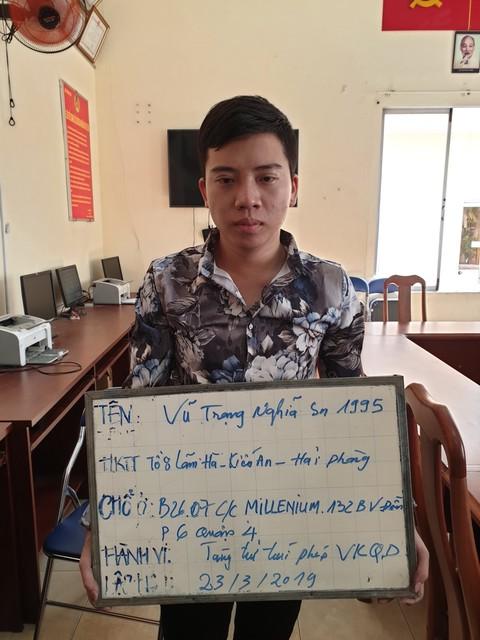 TÊN: Vũ Trọng Nghĩa Sn 1995
HKTT Tổ 8 Lãm Hà - Kiến An - Hải phòng
CHỖ Ở: B26.07 C/C MiLLENiUM. 132 B V Đồn
P 6 Quận 4
HÀNH VI: Tàng trữ trái phép VKQD
23/3/2019